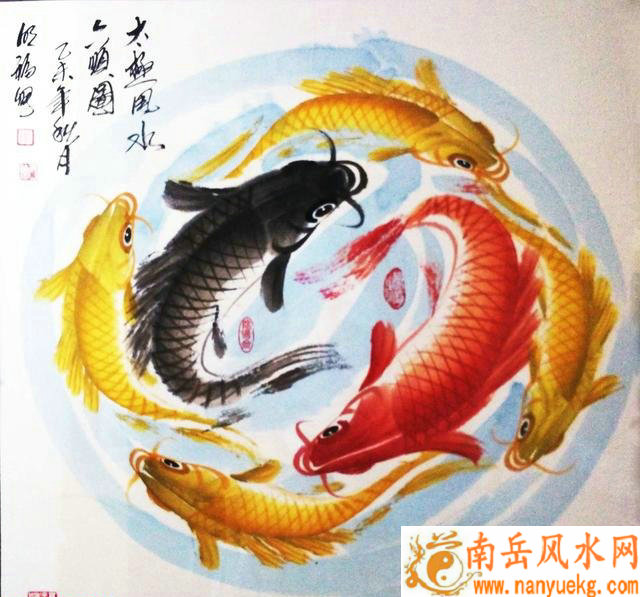 太極风水
六順圖
乙未年秋月
南岳风水网
www.nanyuekg.com